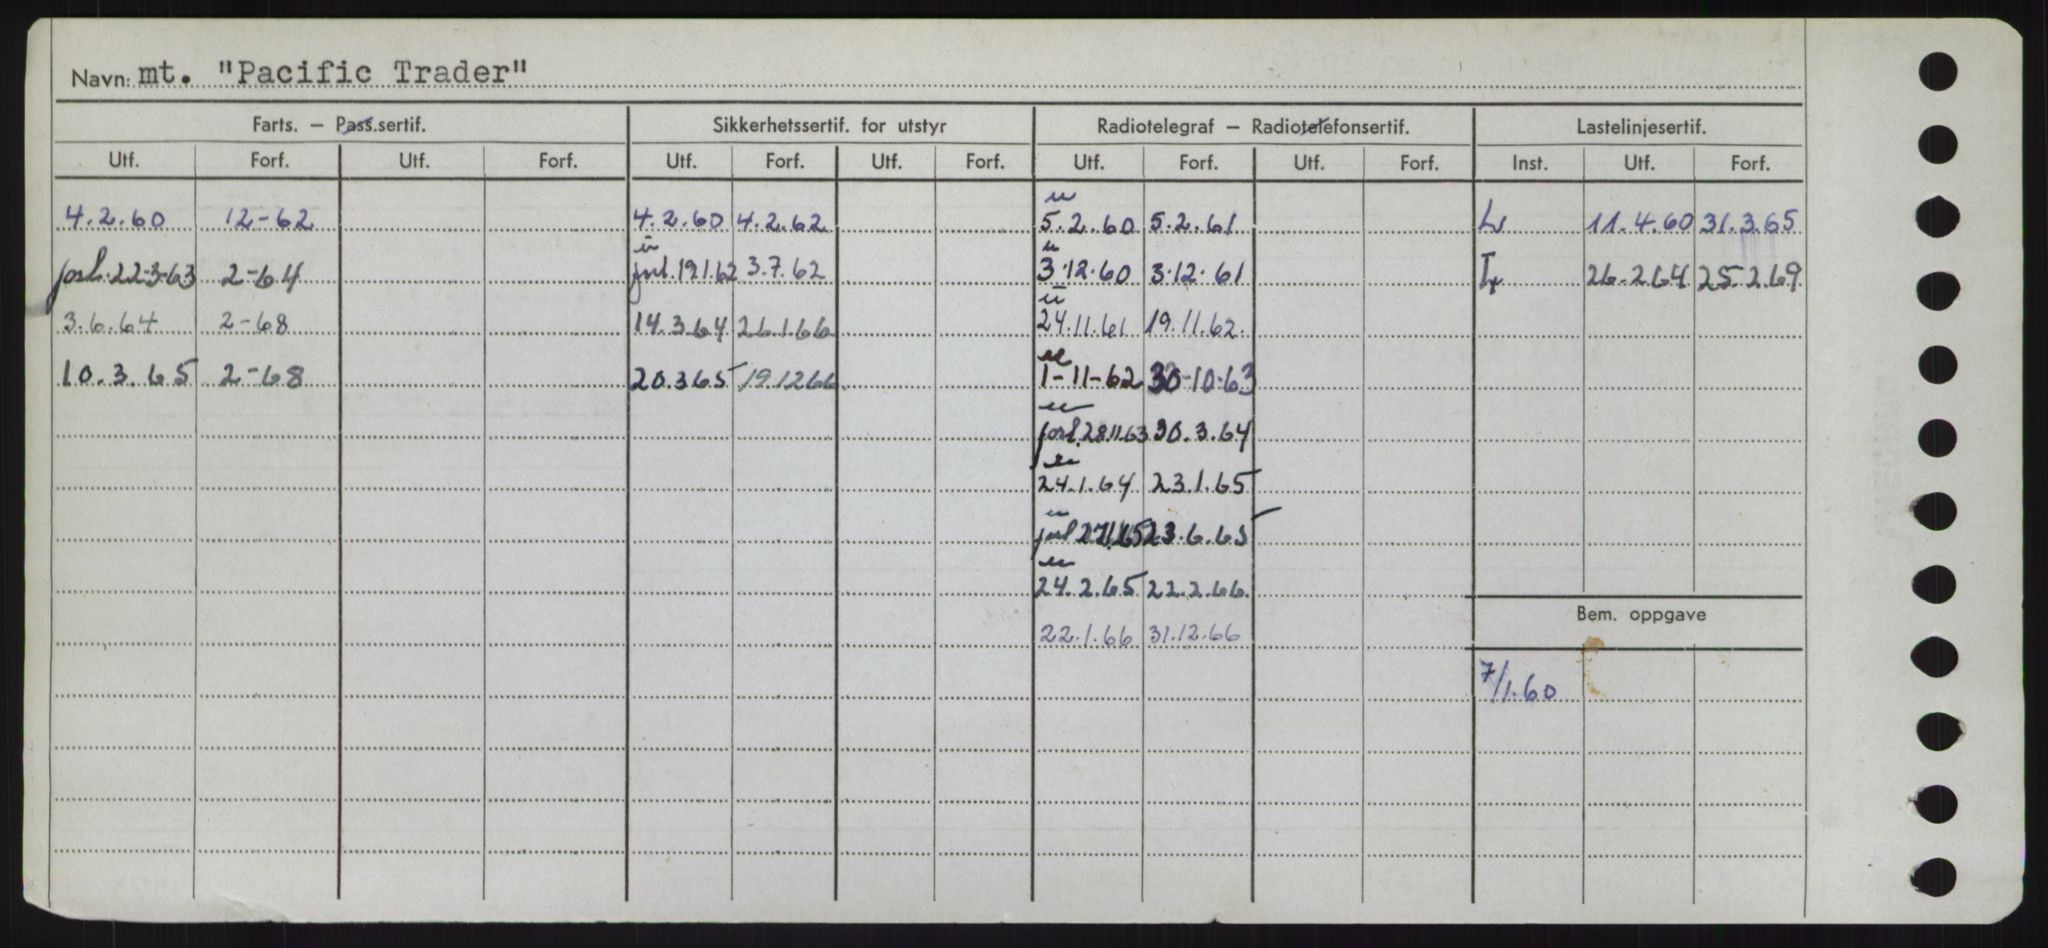 Navn: mt. "Pacific Trader"
Farts. – Pass.sertif. Sikkerhetssertif. for utstyr Radiotelegraf – Radiotelefonsertif. Lastelinjesertif.
Utf. Forf. Utf. Forf. Utf. Forf. Utf. Forf. Utf. Forf. Utf. Forf. Inst. Utf. Forf.
4.2.60 12-62 4.2.60 4.2.62 5.2.60 5.2.61 Lr 11.4.60 31.3.65
forl. 22-3-63 2-64 forl. 19.1.62 3.7.62 3.12.60 3.12.61 Lr 26.2.64 25.2.69
3.6.64 2-68 14.3.64 26.1.66 24.11.61 19.11.62
10.3.65 2-68 20.3.65 19.12.66 1-11-62 30-10-63
forl. 28.11.63 30.3.64
24.1.64 23.1.65
forl 23.6.65
24.2.65 22.2.66
Bem. oppgave
22.1.66 31.12.66
7/1.60